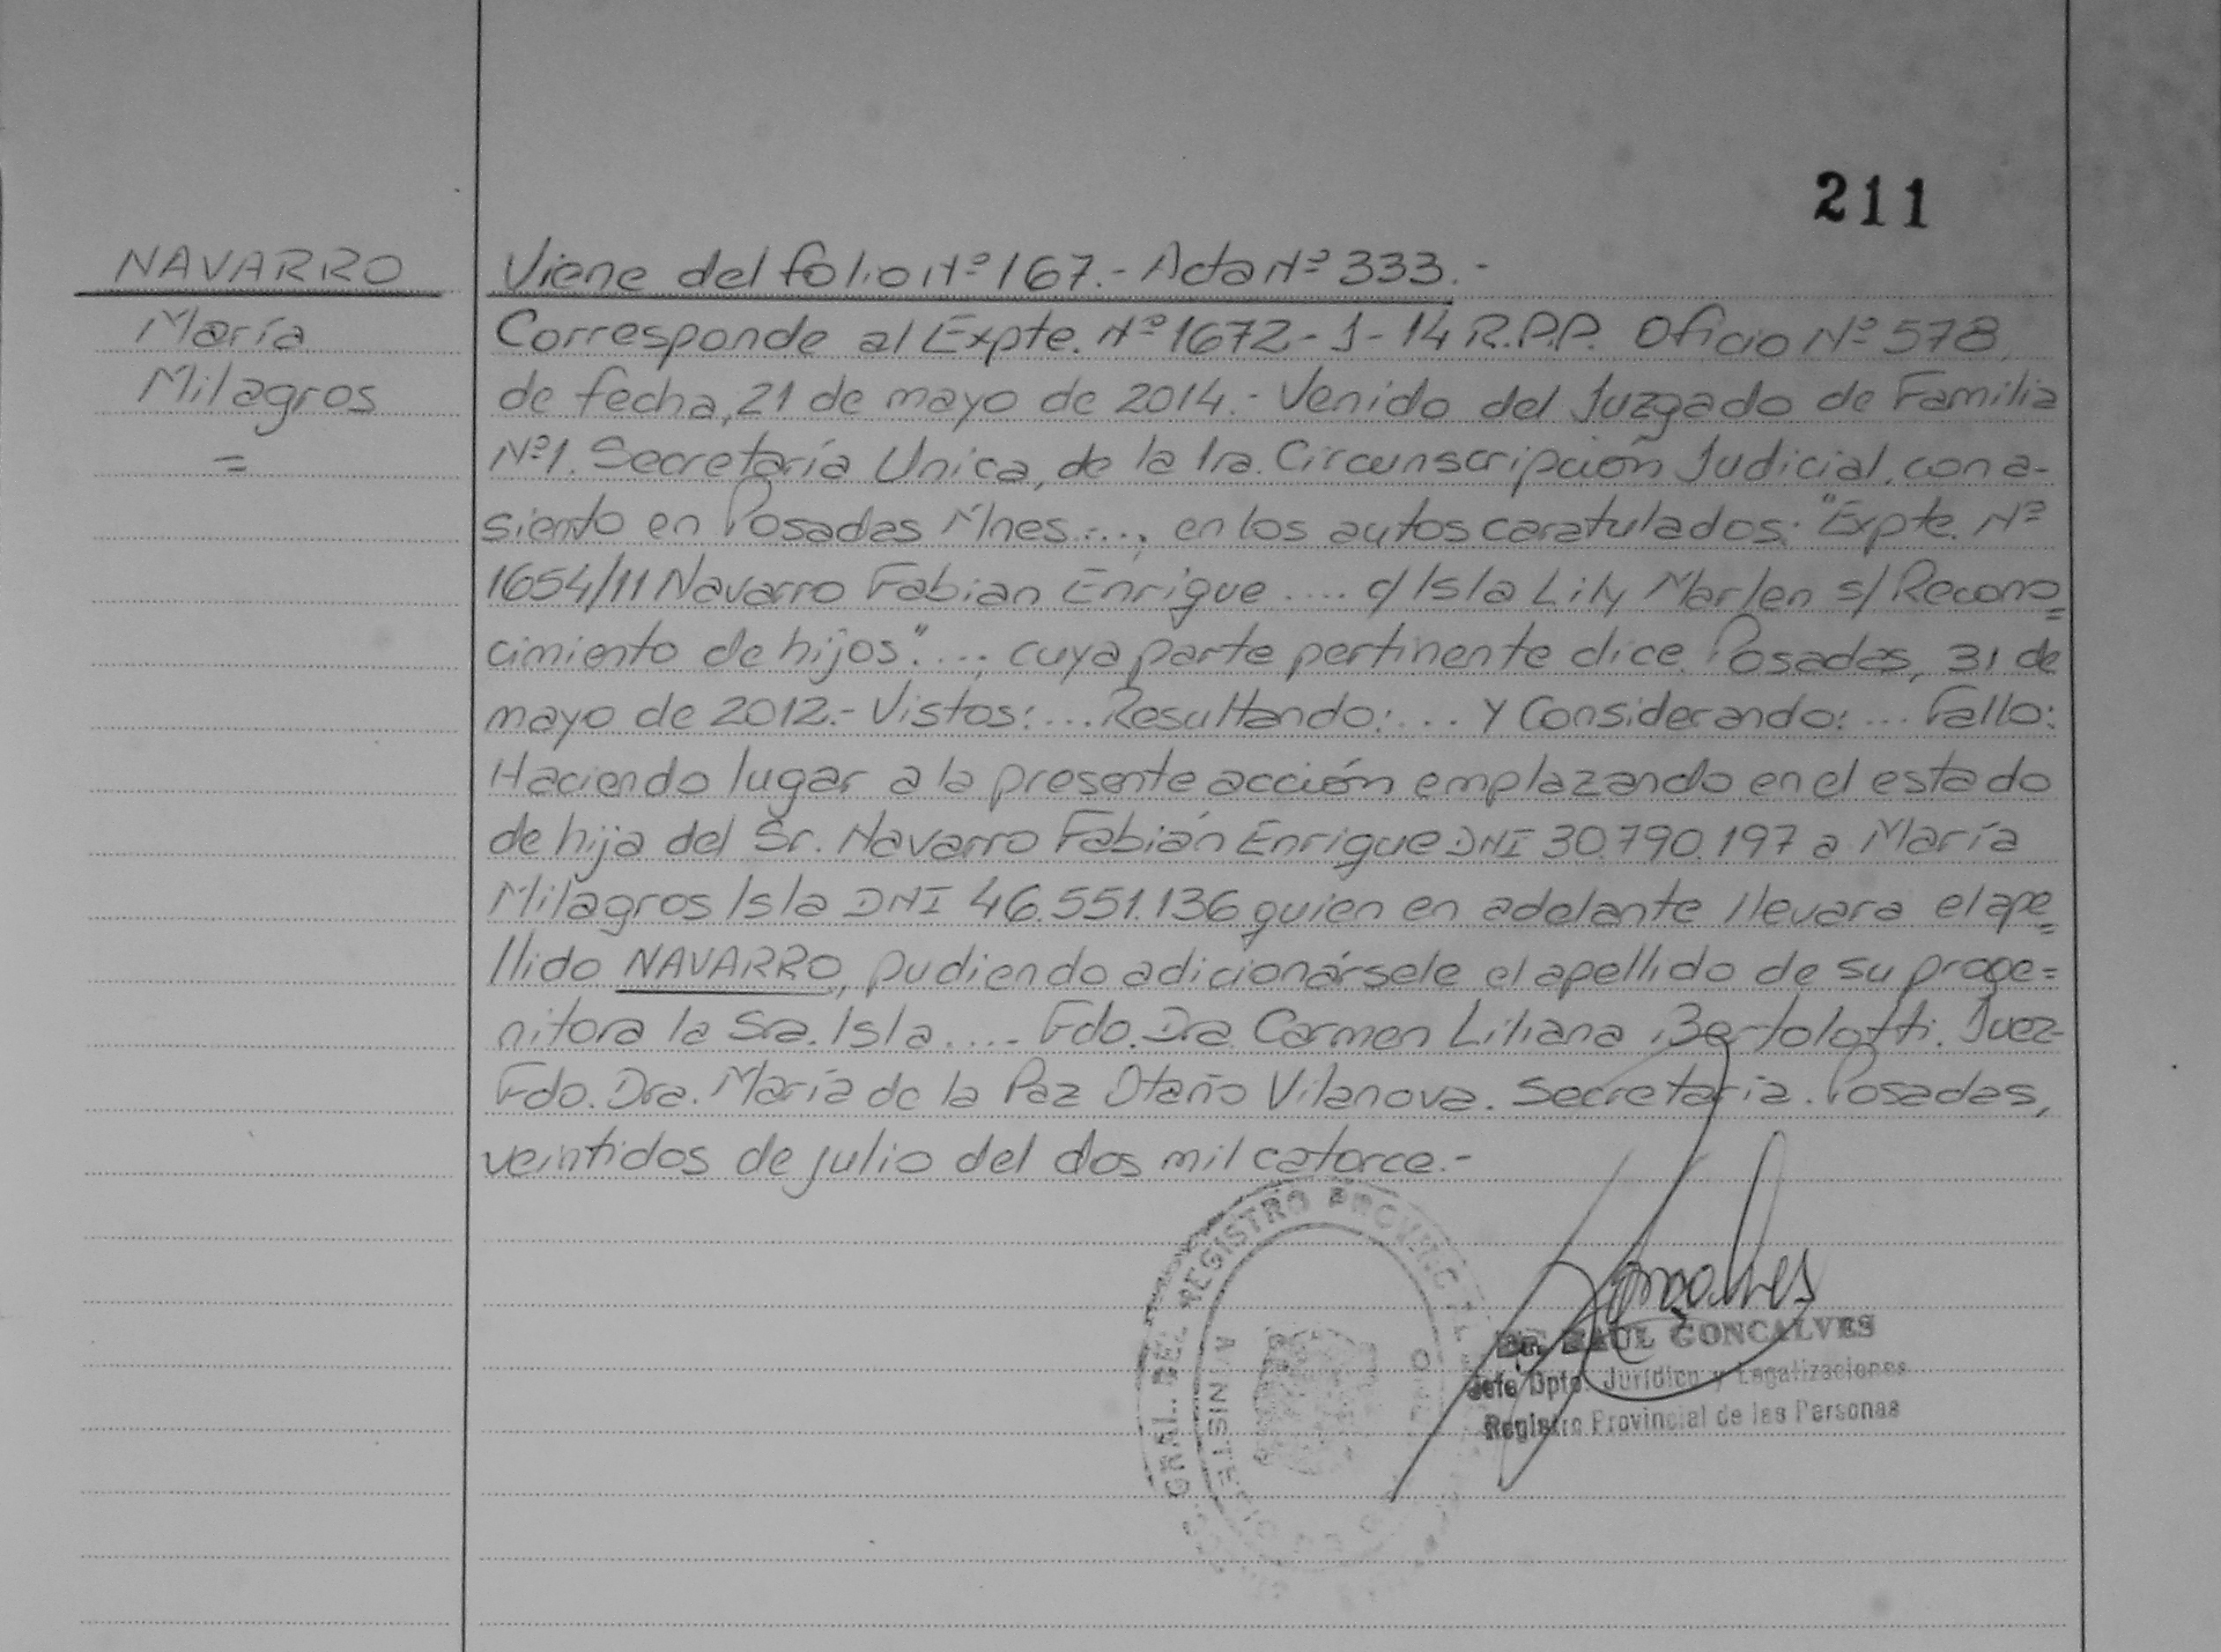 211
NAVARRO
María
Milagros
=
Viene del folio Nº 167.- Acta Nº 333.-
Corresponde al Expte. Nº 1672-J-14 R.P.P. Oficio Nº 578,
de fecha, 21 de mayo de 2014.- Venido del Juzgado de Familia
Nº1. Secretaría Unica, de la 1ra. Circunscripción Judicial, con a-
siento en Posadas Mnes...., en los autos caratulados: "Expte. Nº
1654/11 Navarro Fabian Enrique .... c/ Isla Lily Marlen s/ Recono=
cimiento de hijos"...., cuya parte pertinente dice. Posadas, 31 de
mayo de 2012.- Vistos: ... Resultando: ... Y Considerando: ... Fallo:
Haciendo lugar a la presente acción emplazando en el estado
de hija del Sr. Navarro Fabián Enrique DNI 30.790.197 a María
Milagros Isla DNI 46.551.136 quien en adelante llevara el ape=
llido NAVARRO, pudiendo adicionársele el apellido de su proge=
nitora la Sra. Isla .... Fdo. Dra. Carmen Liliana Bertolotti. Juez-
Fdo. Dra. María de la Paz Otaño Vilanova. Secretaria. Posadas,
veintidos de julio del dos mil catorce.-
GRAL. DEL REGISTRO PROVINCIAL
MINISTERIO DE GO
Goncalves
Dr. RAUL GONCALVES
Jefe Dpto. Jurídico y Legalizaciones
Registro Provincial de las Personas